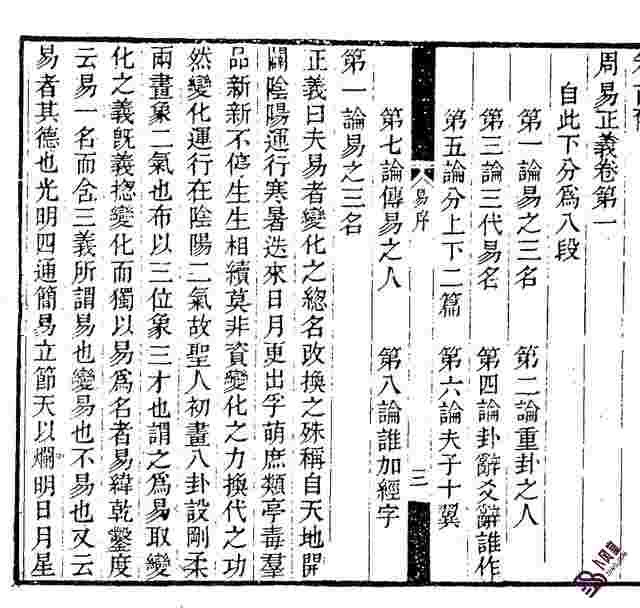 周易正義卷第一
自此下分爲八段
第一論易之三名 第二論重卦之人
第三論三代易名 第四論卦辭爻辭誰作
第五論分上下二篇 第六論夫子十翼
第七論傳易之人 第八論誰加經字
易序 三
第一論易之三名
正義曰夫易者變化之緫名改換之殊稱自天地開
闢陰陽運行寒暑迭來日月更出孚萌庶類亭毒羣
品新新不停生生相續莫非資變化之力換代之功
然變化運行在陰陽二氣故聖人初畫八卦設剛柔
兩畫象二氣也布以三位象三才也謂之爲易取變
化之義旣義揔變化而獨以易爲名者易緯乾鑿度
云易一名而含三義所謂易也變易也不易也又云
易者其德也光明四通簡易立節天以爛明日月星